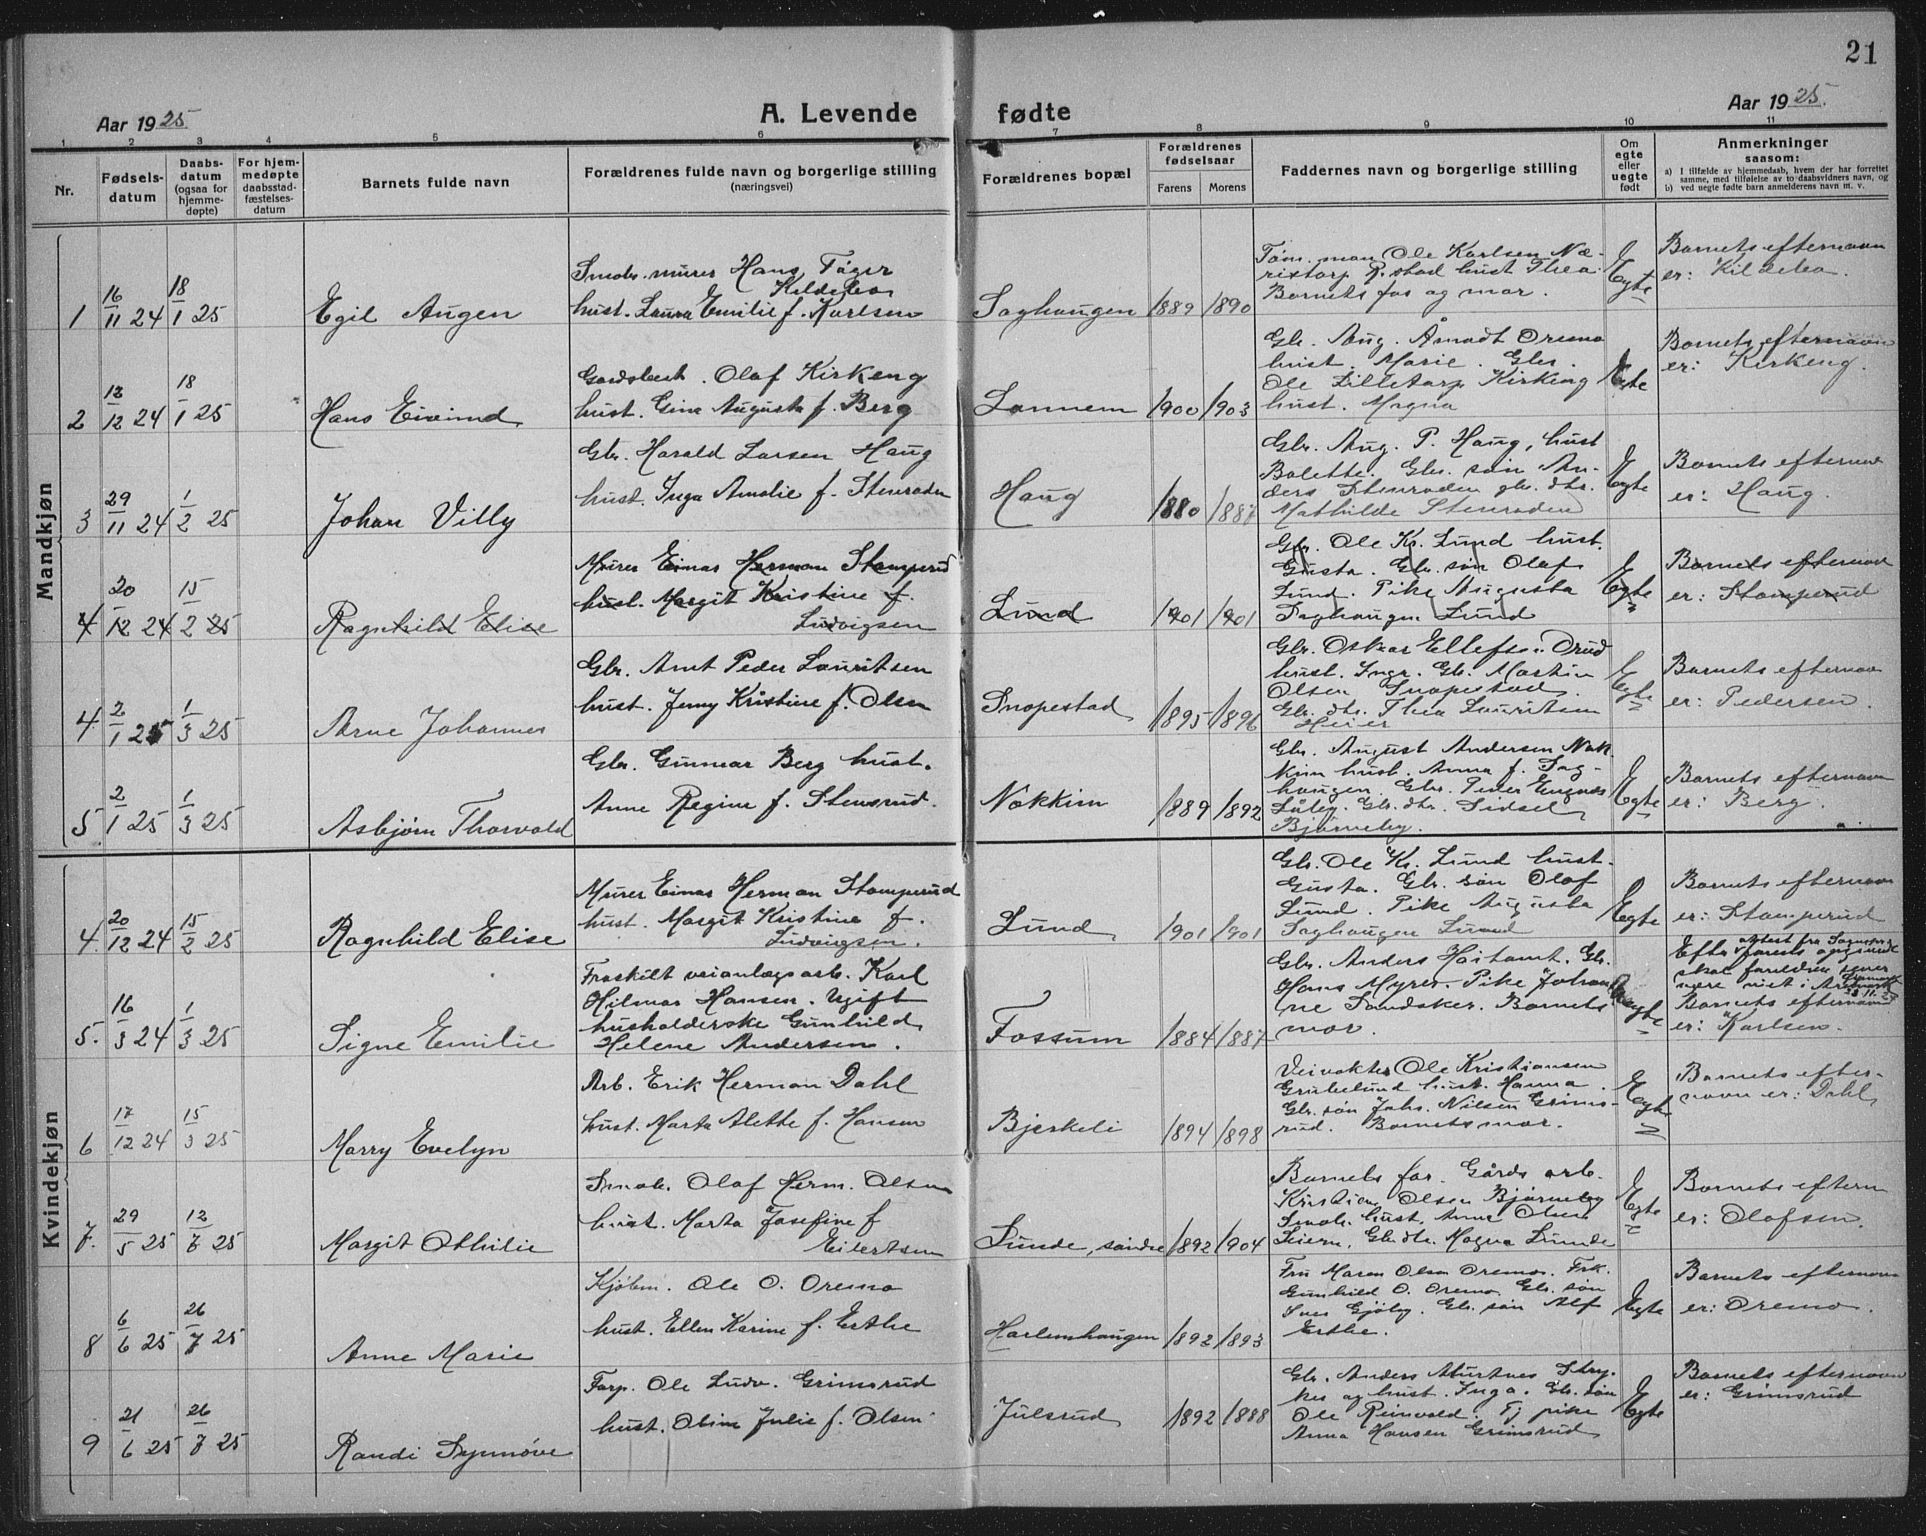 21
Aar 1925
A. Levende
fødte
Aar 1925.
1 2 3 4 5 6 7 8 9 10 11
Nr.
Fødsels-
datum
Daabs-
datum
(ogsaa for
hjemme-
døpte)
For hjem-
medøpte
daabsstad-
fæstelses-
datum
Barnets fulde navn
Forældrenes fulde navn og borgerlige stilling
(næringsvei)
Forældrenes bopæl
Forældrenes
fødselsaar
Farens
Morens
Faddernes navn og borgerlige stilling
Om
egte
eller
uegte
født
Anmerkninger
saasom:
a) I tilfælde av hjemmedaab, hvem der har forrettet
samme, med tilføielse av to daabsvidners navn, og
b) ved uegte født barn anmelderens navn m. v.
Mandkjøn
1 16/11 24 18/1 25
Egil Augen
Smabr. murer Hans
Kildebo
hust. Laura Emilie f. Karlsen
Saghaugen 1889 1890
Tøm. man Ole Karlsen Næ-
ristorp R.stad hust Thea
Barnets far og mor.
Egte
Barnets efternavn
er: Kildebo.
2 13/12 24 18/1 25
Hans Eivind
Gardsbest. Olaf Kirkeng
hust. Gina Augusta f. Berg
Lannem 1900 1903
Gbr. Aug. Åmodt Oremo
hust. Marie. Gbr.
Ole Lilletorp Kirkeng
hust. Magna
Egte
Barnets efternavn
er: Kirkeng.
3 29/11 24 1/2 25
Johan Villy
Gbr. Harald Larsen Haug
hust. Inga Amalie f. Stenraden
Haug 1880 1887
Gbr. Aug. P. Haug, hust
Bolette. Gbr. søn An-
ders Stenraden gbr. dtr.
Mathilde Stenraden
Egte
Barnets efternav
er: Haug.
4 20/12 24 15/2 25
Ragnhild Elise
Murer Einar Herman Stomperud
hust. Margit Kristine f.
Ludvigsen
Lund 1901 1901
Gbr. Ole Kr. Lund hust.
Gusta. Gbr. søn Olaf
Lund. Pike Augusta
Saghaugen Lund
Egte
Barnets efternav
er: Stomperud
4 2/1 25 1/3 25
Arne Johannes
Gbr. Arnt Peder Lauritsen
hust. Jenny Kristine f. Olsen
Snopestad 1895 1896
Gbr. Oskar Ellefsen Orud
hust. Ingr. Gb. Martin
Olsen Snopestad.
Gbr. dtr. Thea Lauritsen
Heier
Egte
Barnets efternav
er: Pedersen.
5 2/1 25 1/3 25
Asbjørn Thorvald
Gbr. Gunnar Berg hust.
Anne Regine f. Stensrud.
Nokkim 1889 1892
Gbr. August Andersen Nok
kim hust. Anna f. Sag-
haugen. Gbr. Peder Engnes
Gbr. dtr. Sidsel
Bjørneby.
Egte
Barnets efternavn
er: Berg.
Kvindekjøn
4. 20/12 24 15/2 25
Ragnhild Elise
Murer Einar Herman Stomperud
hust. Margit Kristine f.
Ludvigsen.
Lund 1901 1901
Gbr. Ole Kr. Lund hust.
Gusta. Gbr. søn Olaf
Lund. Pike Augusta
Saghaugen Lund
Egte
Barnets efternavn
er: Stomperud
5. 16/3 24 1/3 25
Signe Emilie
Fraskilt veianlægsarb. Karl
Hilmar Hansen. Ugift
husholderske Gunhild
Helene Andersen.
Fossum 1884 1887
Gbr. Anders Høitomt. Gbr.
Hans Myrer. Pike Johan
ne Sandsker. Barnets
mor.
Uegte
Efter attest fra
skal forældrene senere
være viet i Aremark
Barnets efternavn
er: Karlsen.
6 17/12 24 15/3 25
Marry Evelyn
Arb. Erik Herman Dahl
hust. Marta Alette f. Hansen
Bjerkeli 1894 1898
Veivokter Ole Kristiansen
Grubelund hust. Hanna.
Gbr. søn Johs. Nilsen Grims-
rud. Barnets mor.
Egte
Barnets efter-
navn er: Dahl
7. 29/5 25 12/7 25
Margit Othilie
Smab. Olaf Herm. Olsen
hust. Marta Josefine f
Eilertsen
Lunde, søndre 1892 1904
Barnets far. Gårds arb.
Kristian Olsen Bjørneby
Smab. hust. Anne Olsen
Leiern, Gbr dtr. Magna Lunde
Egte
Barnets eftern
er: Olafsen.
8 6/6 25 26/7 25
Anne Marie
Kjøbm. Ole O. Oremo
hust. Ellen Karine f. Erthe
Harlemhaugen 1892 1893
Fru Maren Olsen Oremo. Frk.
Gunhild O. Oremo Gb. søn
Sven Gjølby. Gb. søn Alf
Erthe.
Egte
Barnets efternavn
er: Oremo.
9 21/6 25 26/7 25
Randi Synnøve
Forp. Ole Ludv. Grimsrud
hust. Oline Julie f. Olsen
Julsrud 1892 1888
Gbr. Anders Aturtnes Stry-
ker og hust. Inga. Gb. søn
Ole Reinvold. Tj pike
Anna Hansen Grimsrud
Egte
Barnets efternavn
er: Grimsrud